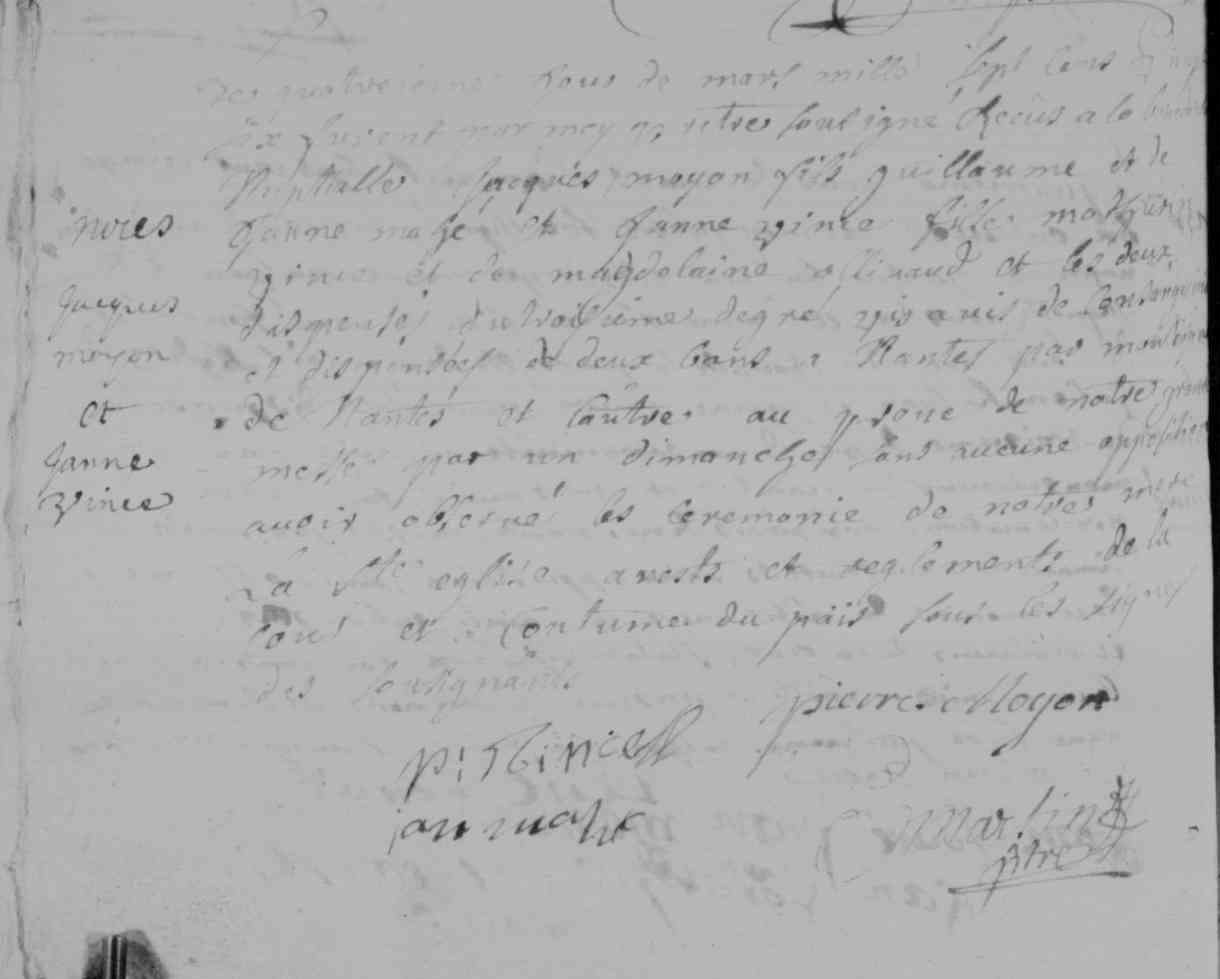 nores
Jacques
moyon
et
Janne
Vince
des quatreieme Jour de mars mille sept cens
six furent par moy pretre sousigné Receus a la
Nuptialle Jacques moyon fils guillaume et de
Janne mahé et Janne vince fille mathurin
vince et de magdelaine ollivaud et les deux
dispensés du troisieme degré vis a vis de Consanguinité
et dispensées de deux bans a Nantes par
de Nantes et l'autre au prone de notre grande
messe par un dimanche sans aucune opposition
avoir observé les Ceremonie de notre mere
La ste eglise arests et reglements de la
Cour et Coutume du païs sous les signes
des sousignants
pierre Moyon
p: Vince
jan mahe
Martin
ptre